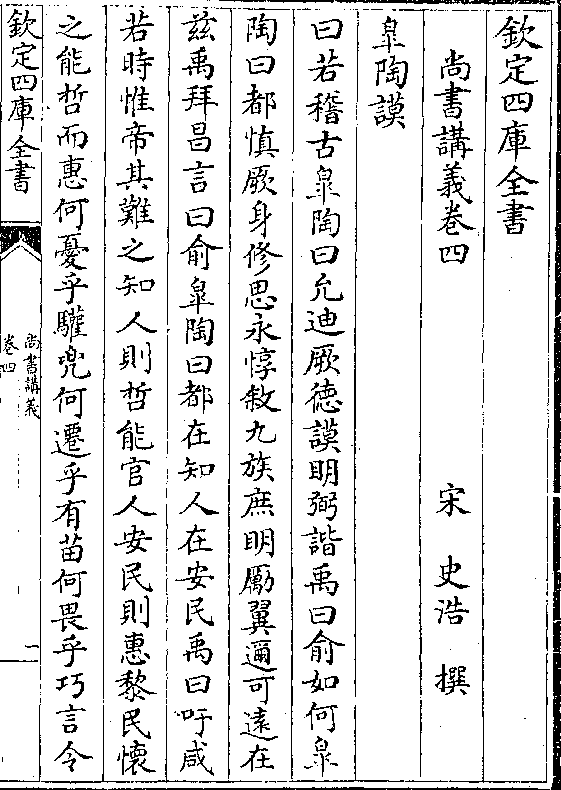 欽定四庫全書
尚書講義卷四
宋 史浩 撰
臯陶謨
曰若稽古臯陶曰允迪厥德謨明弼諧禹曰俞如何臯
陶曰都慎厥身修思永惇敘九族庶明勵翼邇可遠在
兹禹拜昌言曰俞臯陶曰都在知人在安民禹曰吁咸
若時惟帝其難之知人則哲能官人安民則惠黎民懷
之能哲而惠何憂乎驩兜何遷乎有苗何畏乎巧言令
欽定四庫全書
尚書講義
卷四
一